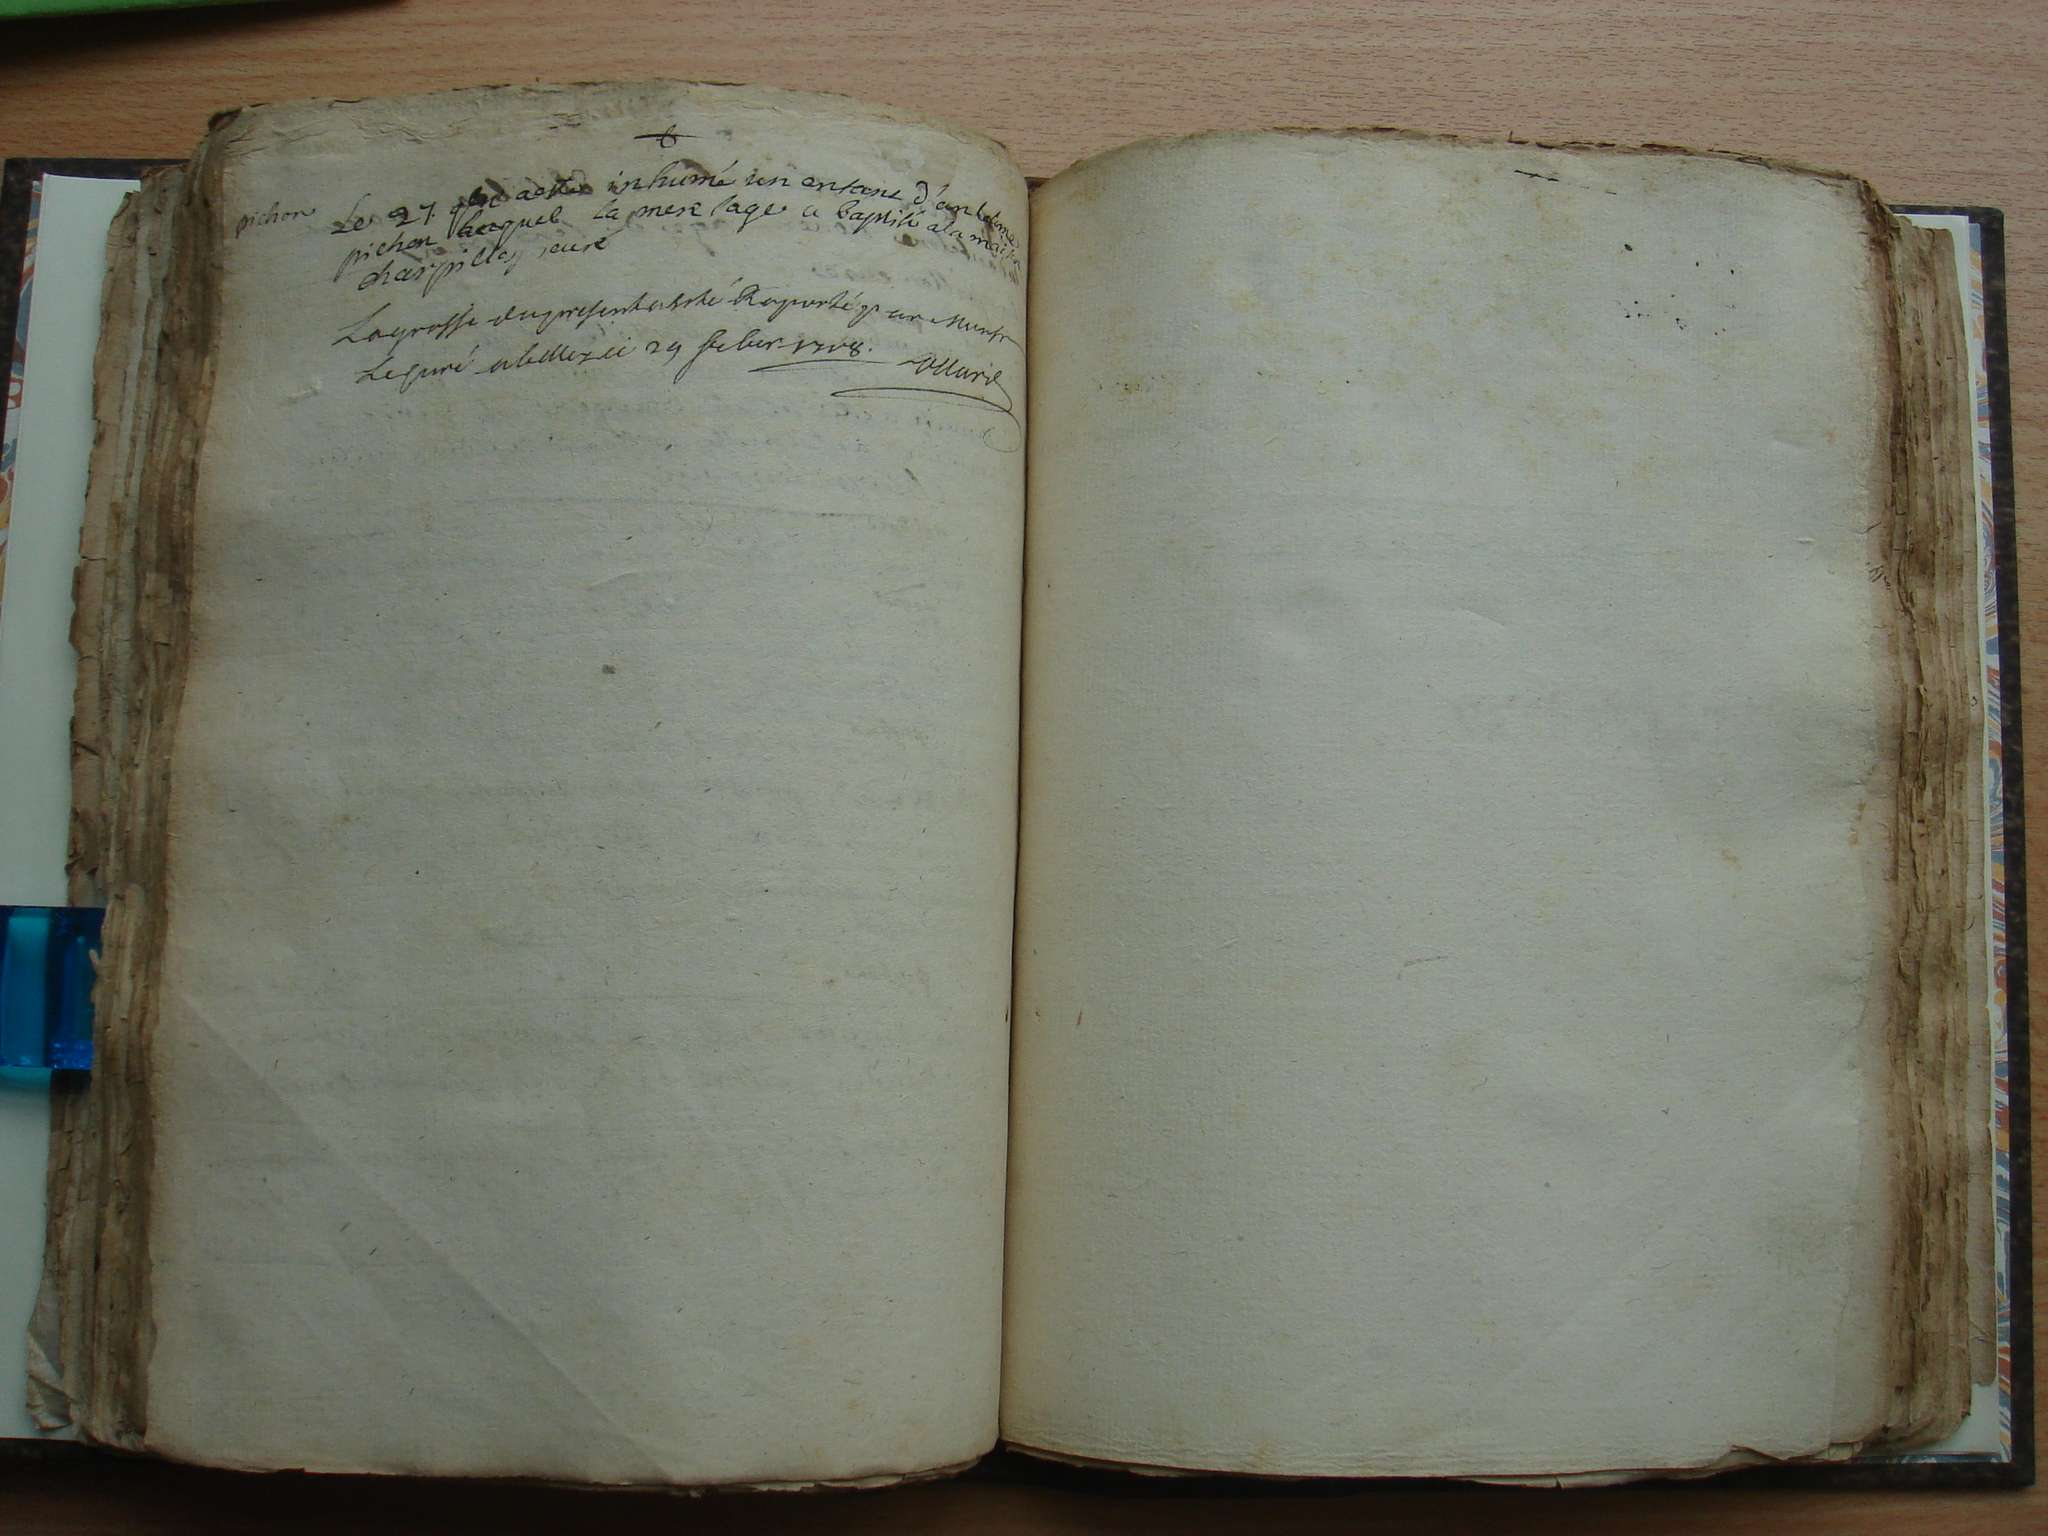 pichon
Le 27 a este inhumé un enfant d'anthelme
pichon lequel la mere sage a baptisé a la maison
charpillon curé
La grosse du present a esté Raporté par Monsr
Le curé a belley ce 29 feber 1708.